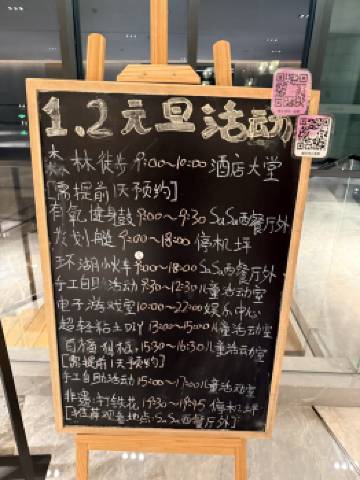 1.2元旦活动
森林徒步 9:00~10:00 酒店大堂
[需提前1天预约]
有氧健身鼓 9:00~9:30 SuSu西餐厅外
皮划艇 9:00~18:00 停机坪
环湖小火车 9:00~18:00 SuSu西餐厅外
手工自助活动 9:30~12:30 儿童活动室
电子游戏室 10:00~22:00 娱乐中心
超轻粘土DIY 13:00~15:00 儿童活动室
15:30~16:30 儿童活动室
[需提前1天预约]
手工自助活动 15:00~17:00 儿童活动室
非遗打铁花 19:30~19:45 停机坪
[推荐观看地点:SuSu西餐厅外]